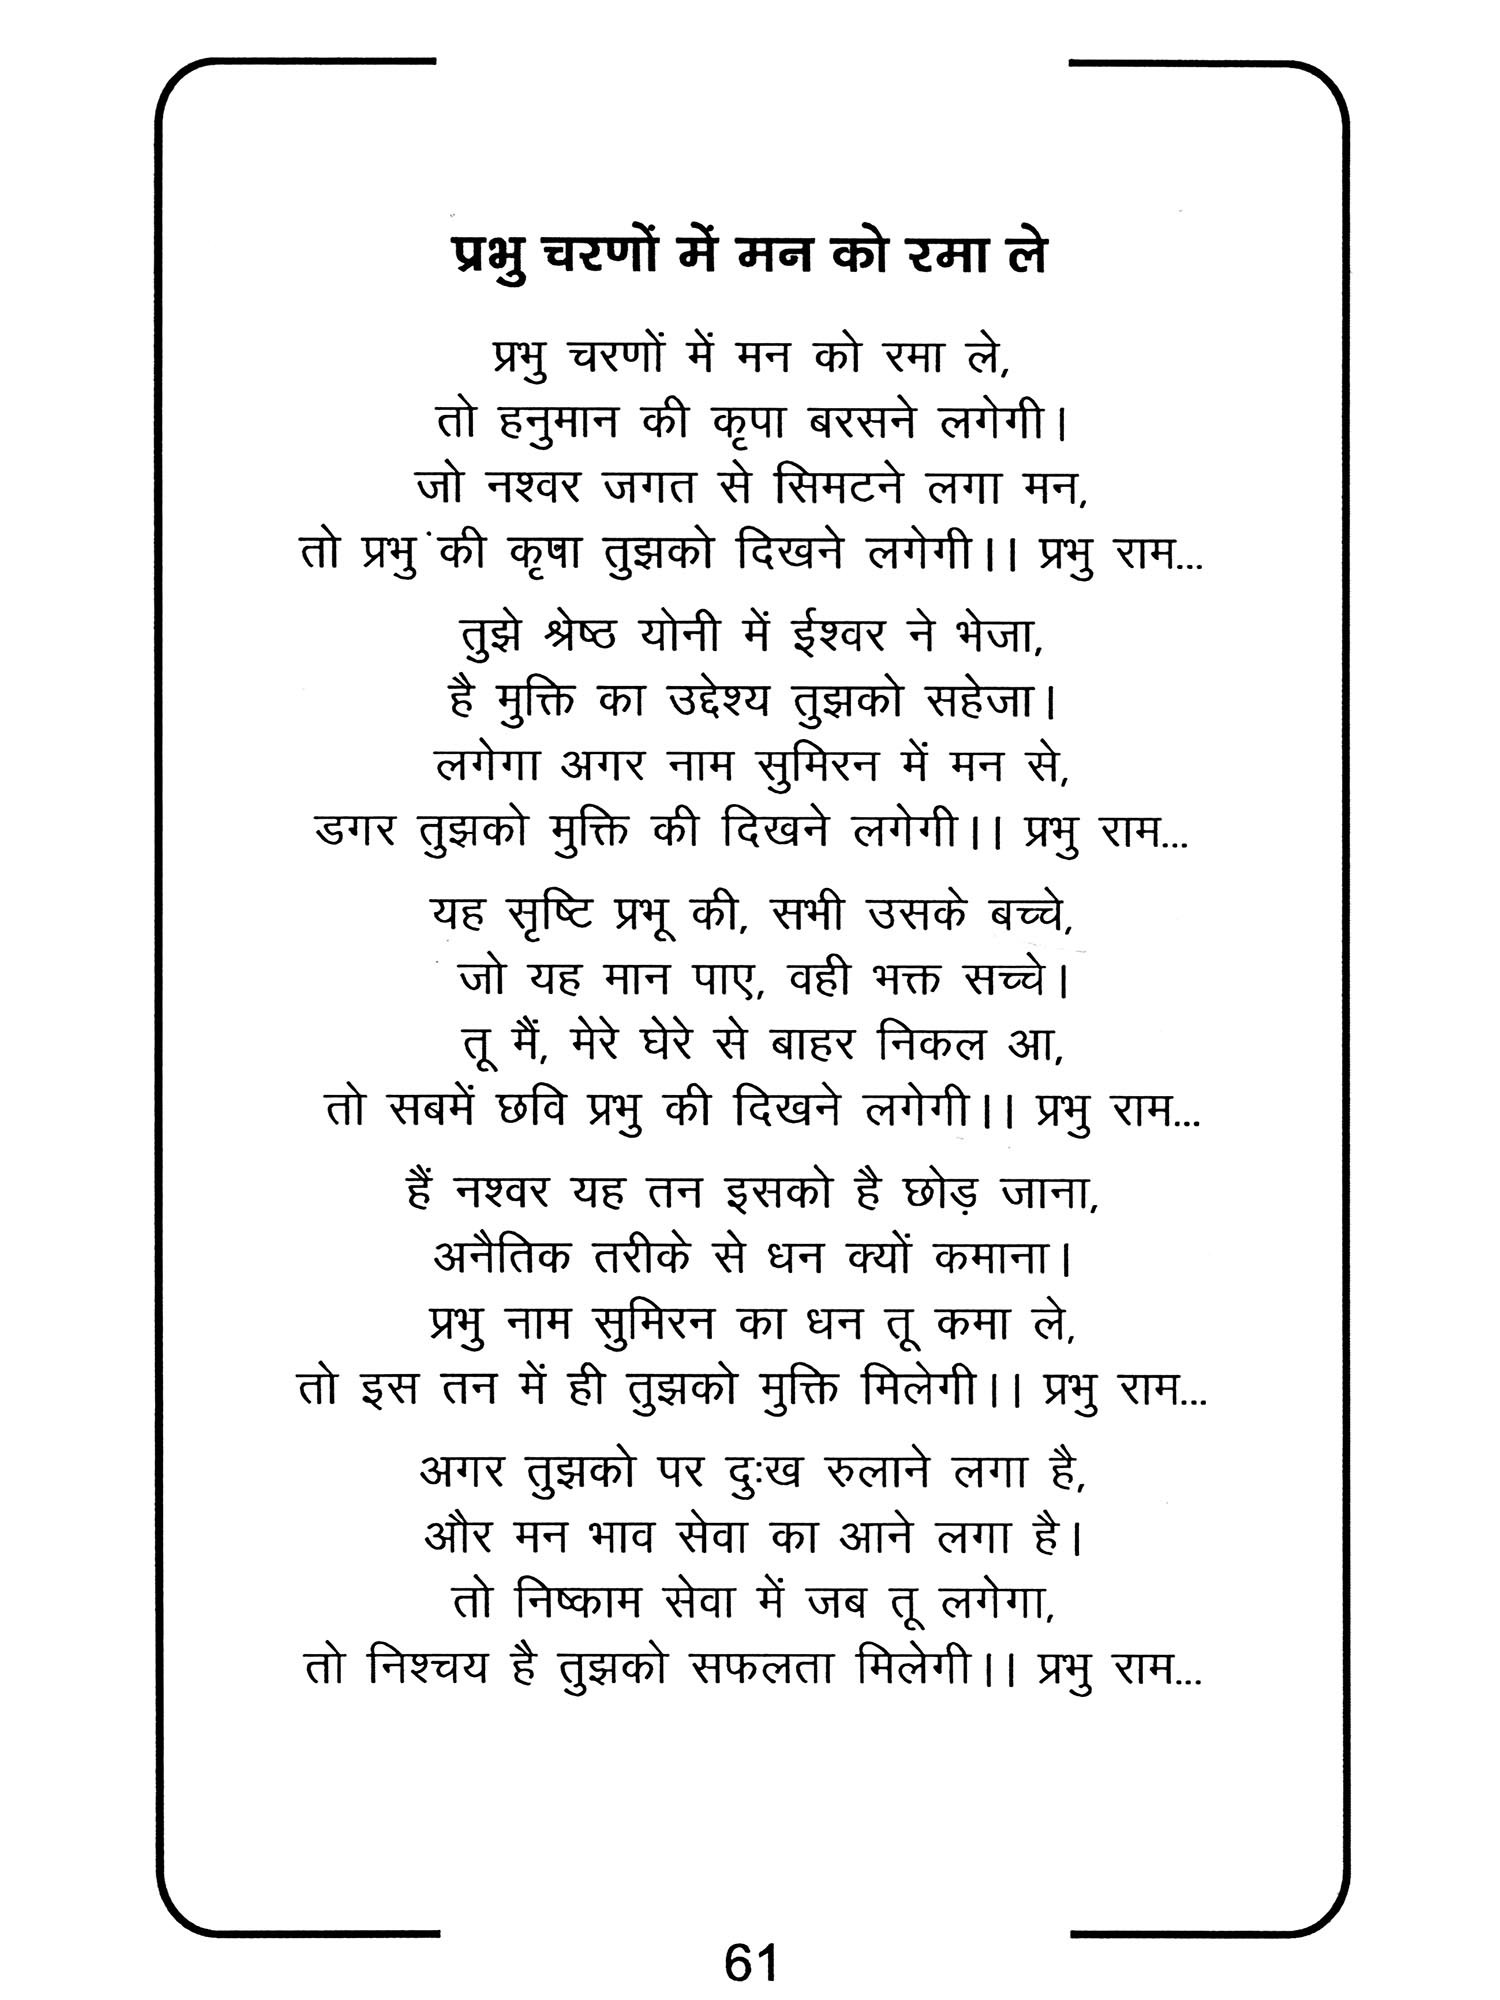 प्रभु चरणों में मन को रमा ले
प्रभु चरणों में मन को रमा ले,
तो हनुमान की कृपा बरसने लगेगी।
जो नश्वर जगत से सिमटने लगा मन,
तो प्रभु की कृषा तुझको दिखने लगेगी।। प्रभु राम...
तुझे श्रेष्ठ योनी में ईश्वर ने भेजा,
है मुक्ति का उद्देश्य तुझको सहेजा।
लगेगा अगर नाम सुमिरन में मन से,
डगर तुझको मुक्ति की दिखने लगेगी।। प्रभु राम...
यह सृष्टि प्रभू की, सभी उसके बच्चे,
जो यह मान पाए, वही भक्त सच्चे।
तू मैं, मेरे घेरे से बाहर निकल आ,
तो सबमें छवि प्रभु की दिखने लगेगी।। प्रभु राम...
हैं नश्वर यह तन इसको है छोड़ जाना,
अनैतिक तरीके से धन क्यों कमाना।
प्रभु नाम सुमिरन का धन तू कमा ले,
तो इस तन में ही तुझको मुक्ति मिलेगी।। प्रभु राम...
अगर तुझको पर दुःख रुलाने लगा है,
और मन भाव सेवा का आने लगा है।
तो निष्काम सेवा में जब तू लगेगा,
तो निश्चय है तुझको सफलता मिलेगी।। प्रभु राम...
61